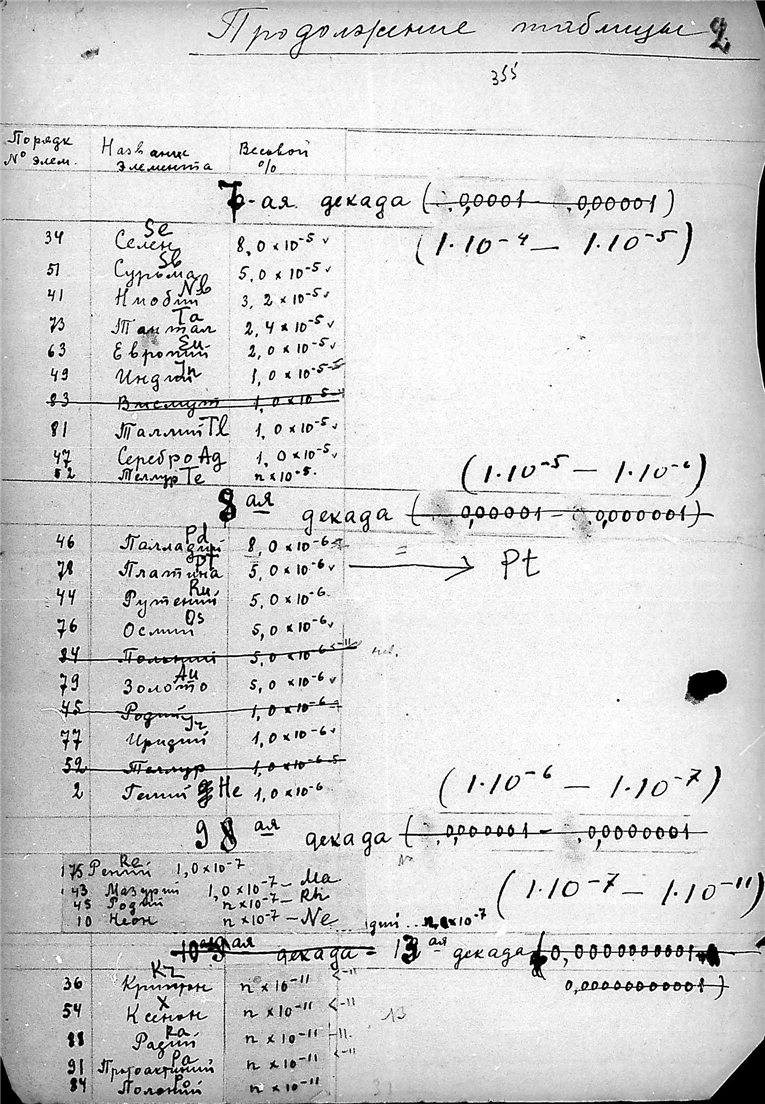 Продолжение таблицы 2
355
Порядк № элем. Название элемента Весовой %
7-ая декада (0,0001 — 0,00001)
(1·10⁻⁴ — 1·10⁻⁵)
34 Селен Se 8,0×10⁻⁵ v
51 Сурьма Sb 5,0×10⁻⁵ v
41 Ниобий Nb 3,2×10⁻⁵ v
73 Тантал Ta 2,4×10⁻⁵ v
63 Европий Eu 2,0×10⁻⁵ v
49 Индий Jn 1,0×10⁻⁵
83 Висмут 1,0×10⁻⁵
81 Таллий Tl 1,0×10⁻⁵ v
47 Серебро Ag 1,0×10⁻⁵ v
52 Теллур Te n×10⁻⁵
(1·10⁻⁵ — 1·10⁻⁶)
8ая декада (0,00001 — 0,000001)
46 Палладий Pd 8,0×10⁻⁶
78 Платина Pt 5,0×10⁻⁶ v → Pt
44 Рутений Ru 5,0×10⁻⁶
76 Осмий Os 5,0×10⁻⁶ v
84 Полоний 5,0×10⁻⁶ <-11
79 Золото Au 5,0×10⁻⁶ v
45 Родий 1,0×10⁻⁶
77 Иридий Jr 1,0×10⁻⁶ v
52 Теллур 1,0×10⁻⁶
2 Гелий He 1,0×10⁻⁶
(1·10⁻⁶ — 1·10⁻⁷)
9 8 ая декада (0,000001 — 0,0000001)
75 Рений Re 1,0×10⁻⁷
43 Мазурий 1,0×10⁻⁷ — Ma
45 Родий n×10⁻⁷ — Rh
10 Неон n×10⁻⁷ — Ne
(1·10⁻⁷ — 1·10⁻¹¹)
дий ... n,0×10⁻⁷
10 ая декада = 13 ая декада (0,0000000001
0,00000000001)
36 Криптон Kr n×10⁻¹¹ <-11
54 Ксенон X n×10⁻¹¹ <-11
13
88 Радий Ra n×10⁻¹¹ -11
91 Протоактиний Pa n×10⁻¹¹ <-11
84 Полоний Po n×10⁻¹¹